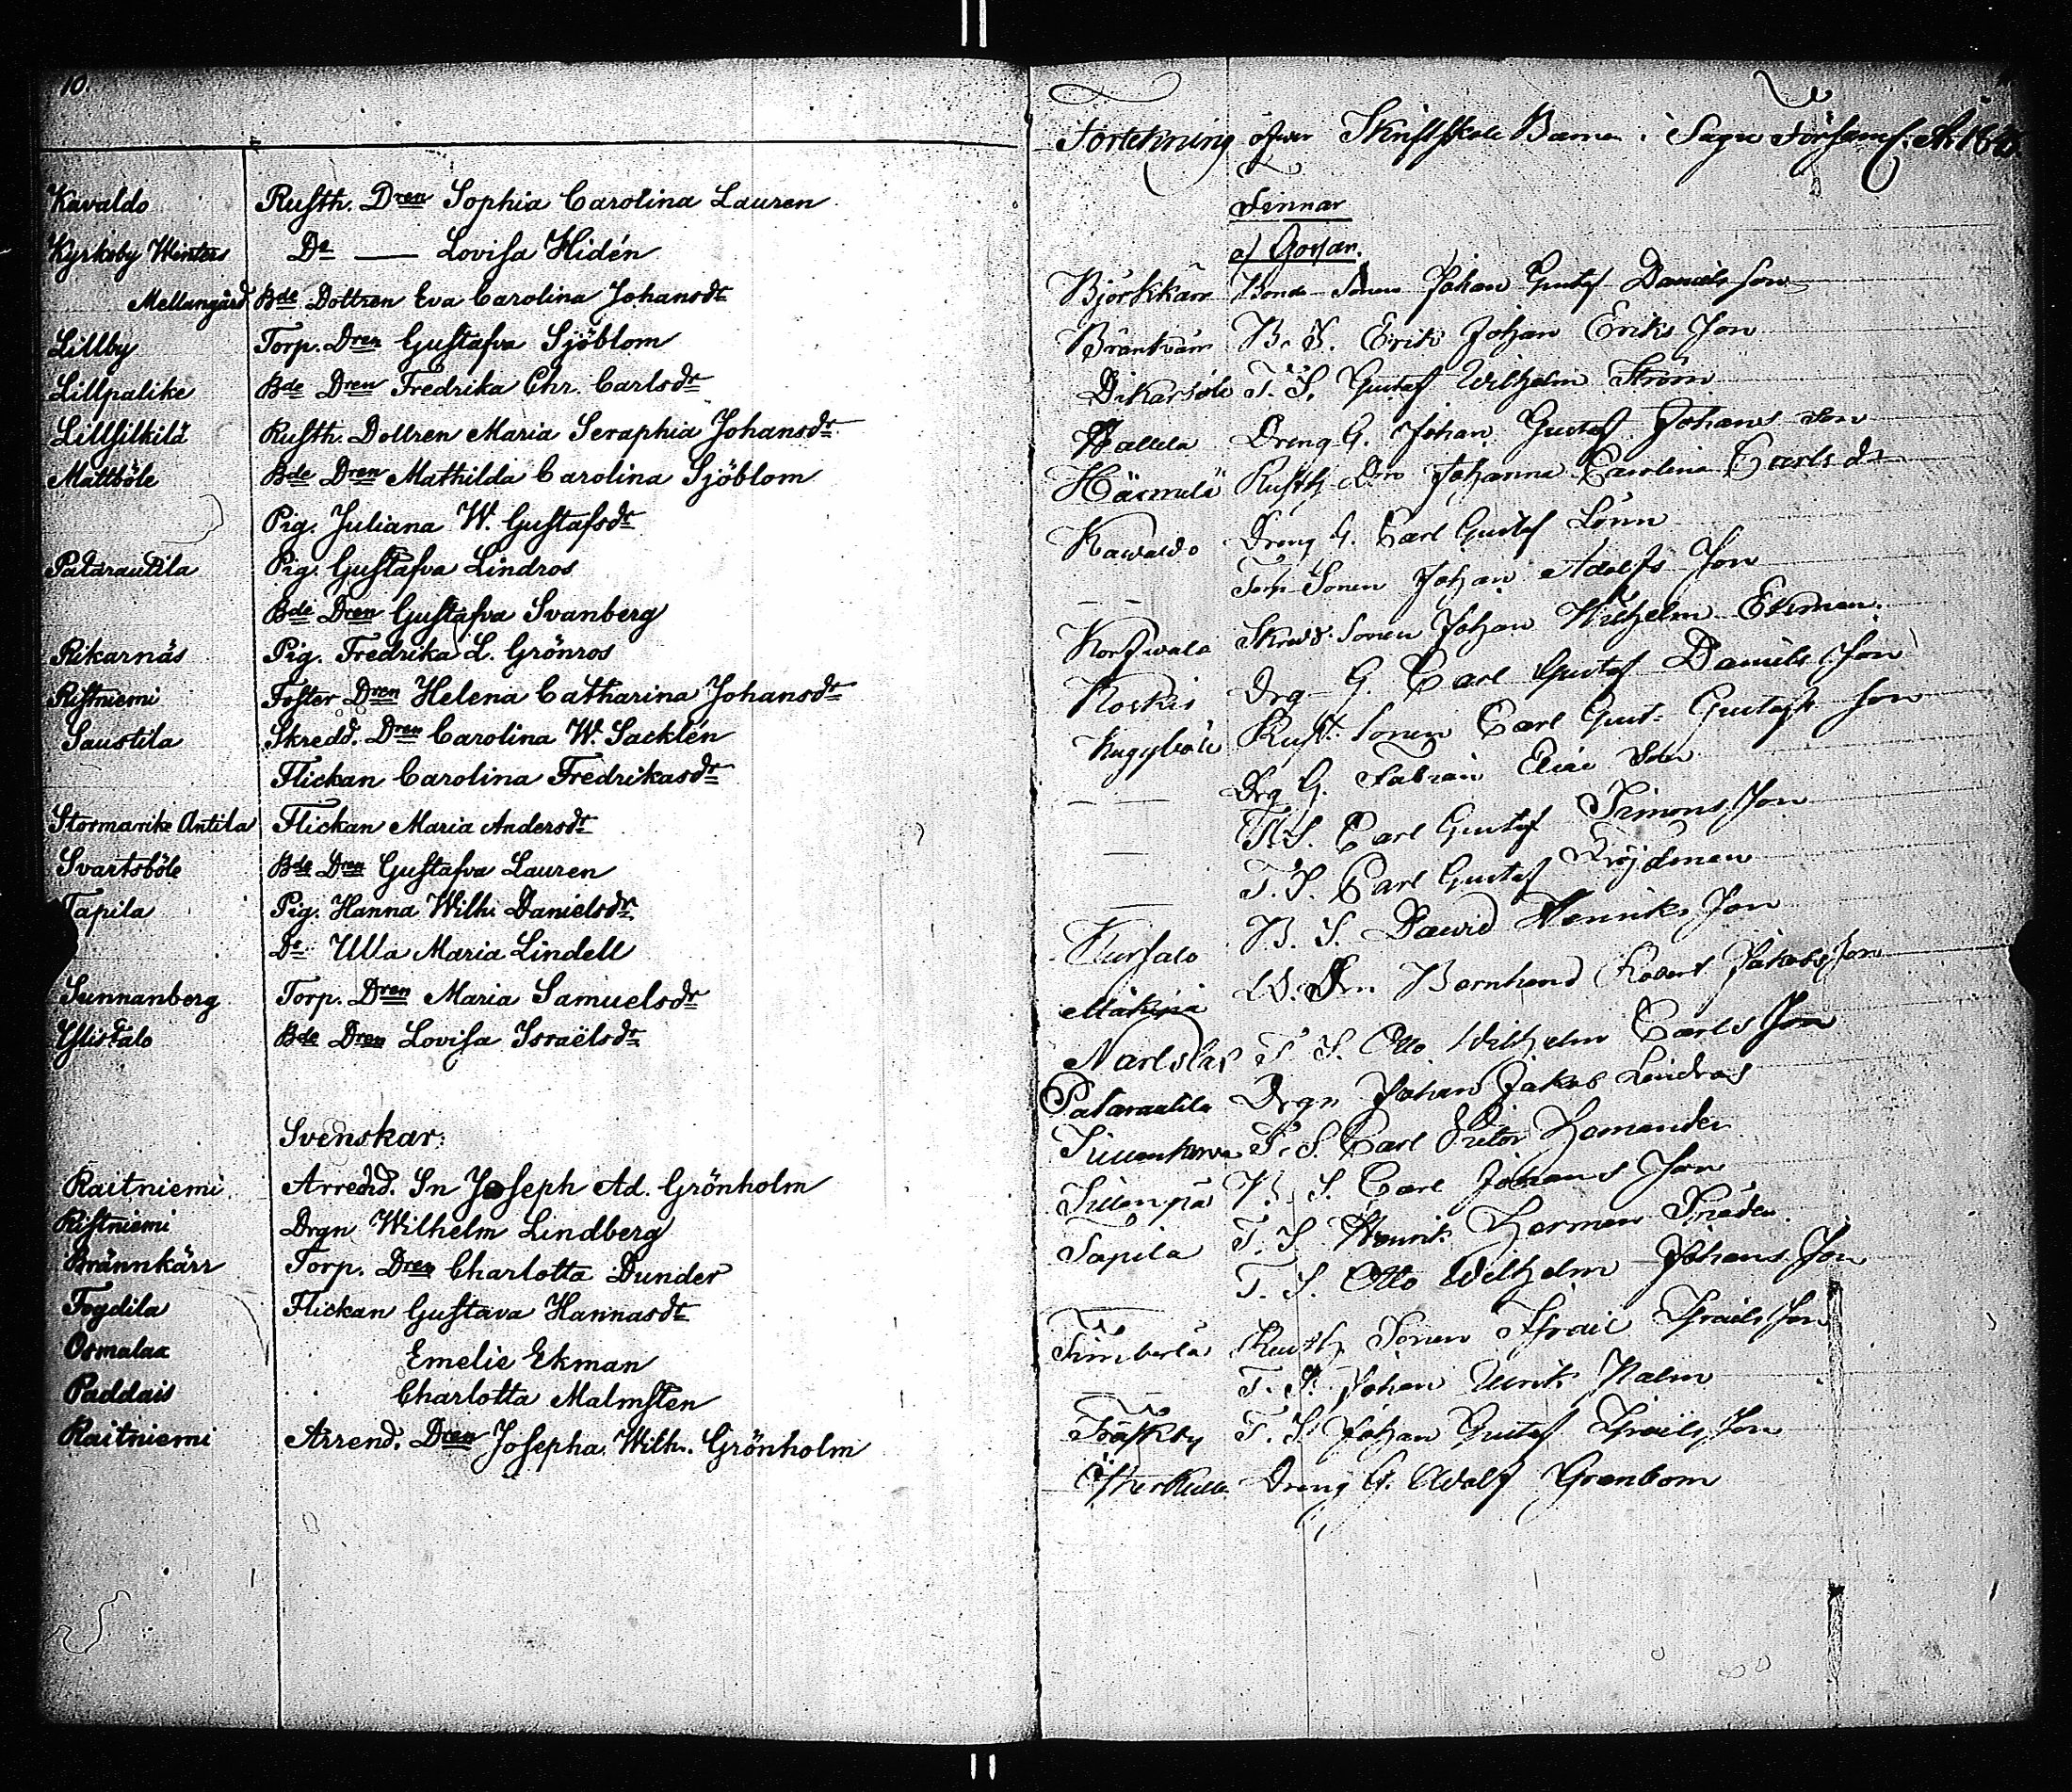 10.
Kavaldo Rusth. Dren Sophia Carolina Lauren
Kyrkoby Winters Do — Lovisa Hidén
Mellangård Bde Dottren Eva Carolina Johansdr
Lillby Torp. Dren Gustafva Sjöblom
Lillpalike Bde Dren Fredrika Chr. Carlsdr
Lillsilkilä Rusth. Dottren Maria Seraphia Johansdr
Mattböle Bde Dren Mathilda Carolina Sjöblom
Pig. Juliana W. Gustafsdr
Patarautila Pig. Gustafva Lindros
Bde Dren Gustafva Svanberg
Rikarnäs Pig. Fredrika L. Grönros
Ristniemi Foster Dren Helena Catharina Johansdr
Saustila Skredd. Dren Carolina W. Sacklén
Flickan Carolina Fredrikasdr
Stormarike Antila Flickan Maria Andersdr
Svartsböle Bde Dren Gustafva Lauren
Tapila Pig. Hanna Wilh. Danielsdr
Do Ulla Maria Lindell
Sunnanberg Torp. Dren Maria Samuelsdr
Ylistalo Bde Dren Lovisa Israëlsdr
Svenskar:
Raitniemi Arrend. Sn Joseph Ad. Grönholm
Ristniemi Drgn Wilhelm Lindberg
Brännkärr Torp. Dren Charlotta Dunder
Fogdila Flickan Gustava Hannasdr
Osmalax Emelie Ekman
Paddais Charlotta Malmsten
Raitniemi Arrend. Dren Josepha Wilh. Grönholm
Förtekning öfver Skriftskole Barnen i Sagu Församl.
Finnar
a) Gossar.
Björkkärr Bonde Sonen Johan Gustaf Daniels son
B. S. Erik Johan Eriks son
Dikarböle T. S. Gustaf Wilhelm Ström
Hallela Dreng G. Johan Gustaf Johans son
Härmälä Rusth Dro Johanna Carolina Carlsdr
Kawaldo Dreng G. Carl Gustaf Lönn
Torp Sonen Johan Adolfs son
Skredd. Sonen Johan Wilhelm Ekman
Koskis Drg G. Carl Gustaf Daniels son
Rust. Sonen Carl Gust. Gustafs son
Drg G. Fabian Elias son
T. S. Carl Gustaf Simons son
T. S. Carl Gustaf Fröjdman
B. S. David Henriks son
Bernhard Robert Jakobs son
T. S. Otto Wilhelm Carls son
Patarautila Drgn Johan Jakob Lindros
T. S. Carl Viktor
B. S. Carl Johans son
Tapila T. S. Henrik Herman
T. S. Otto Wilhelm Johans son
Rusth Sonen Israel Israels son
T. S. Johan Henrik Malm
Träskby T. S. Johan Gustaf Israels son
Österkulla Dreng G. Adolf Granbom